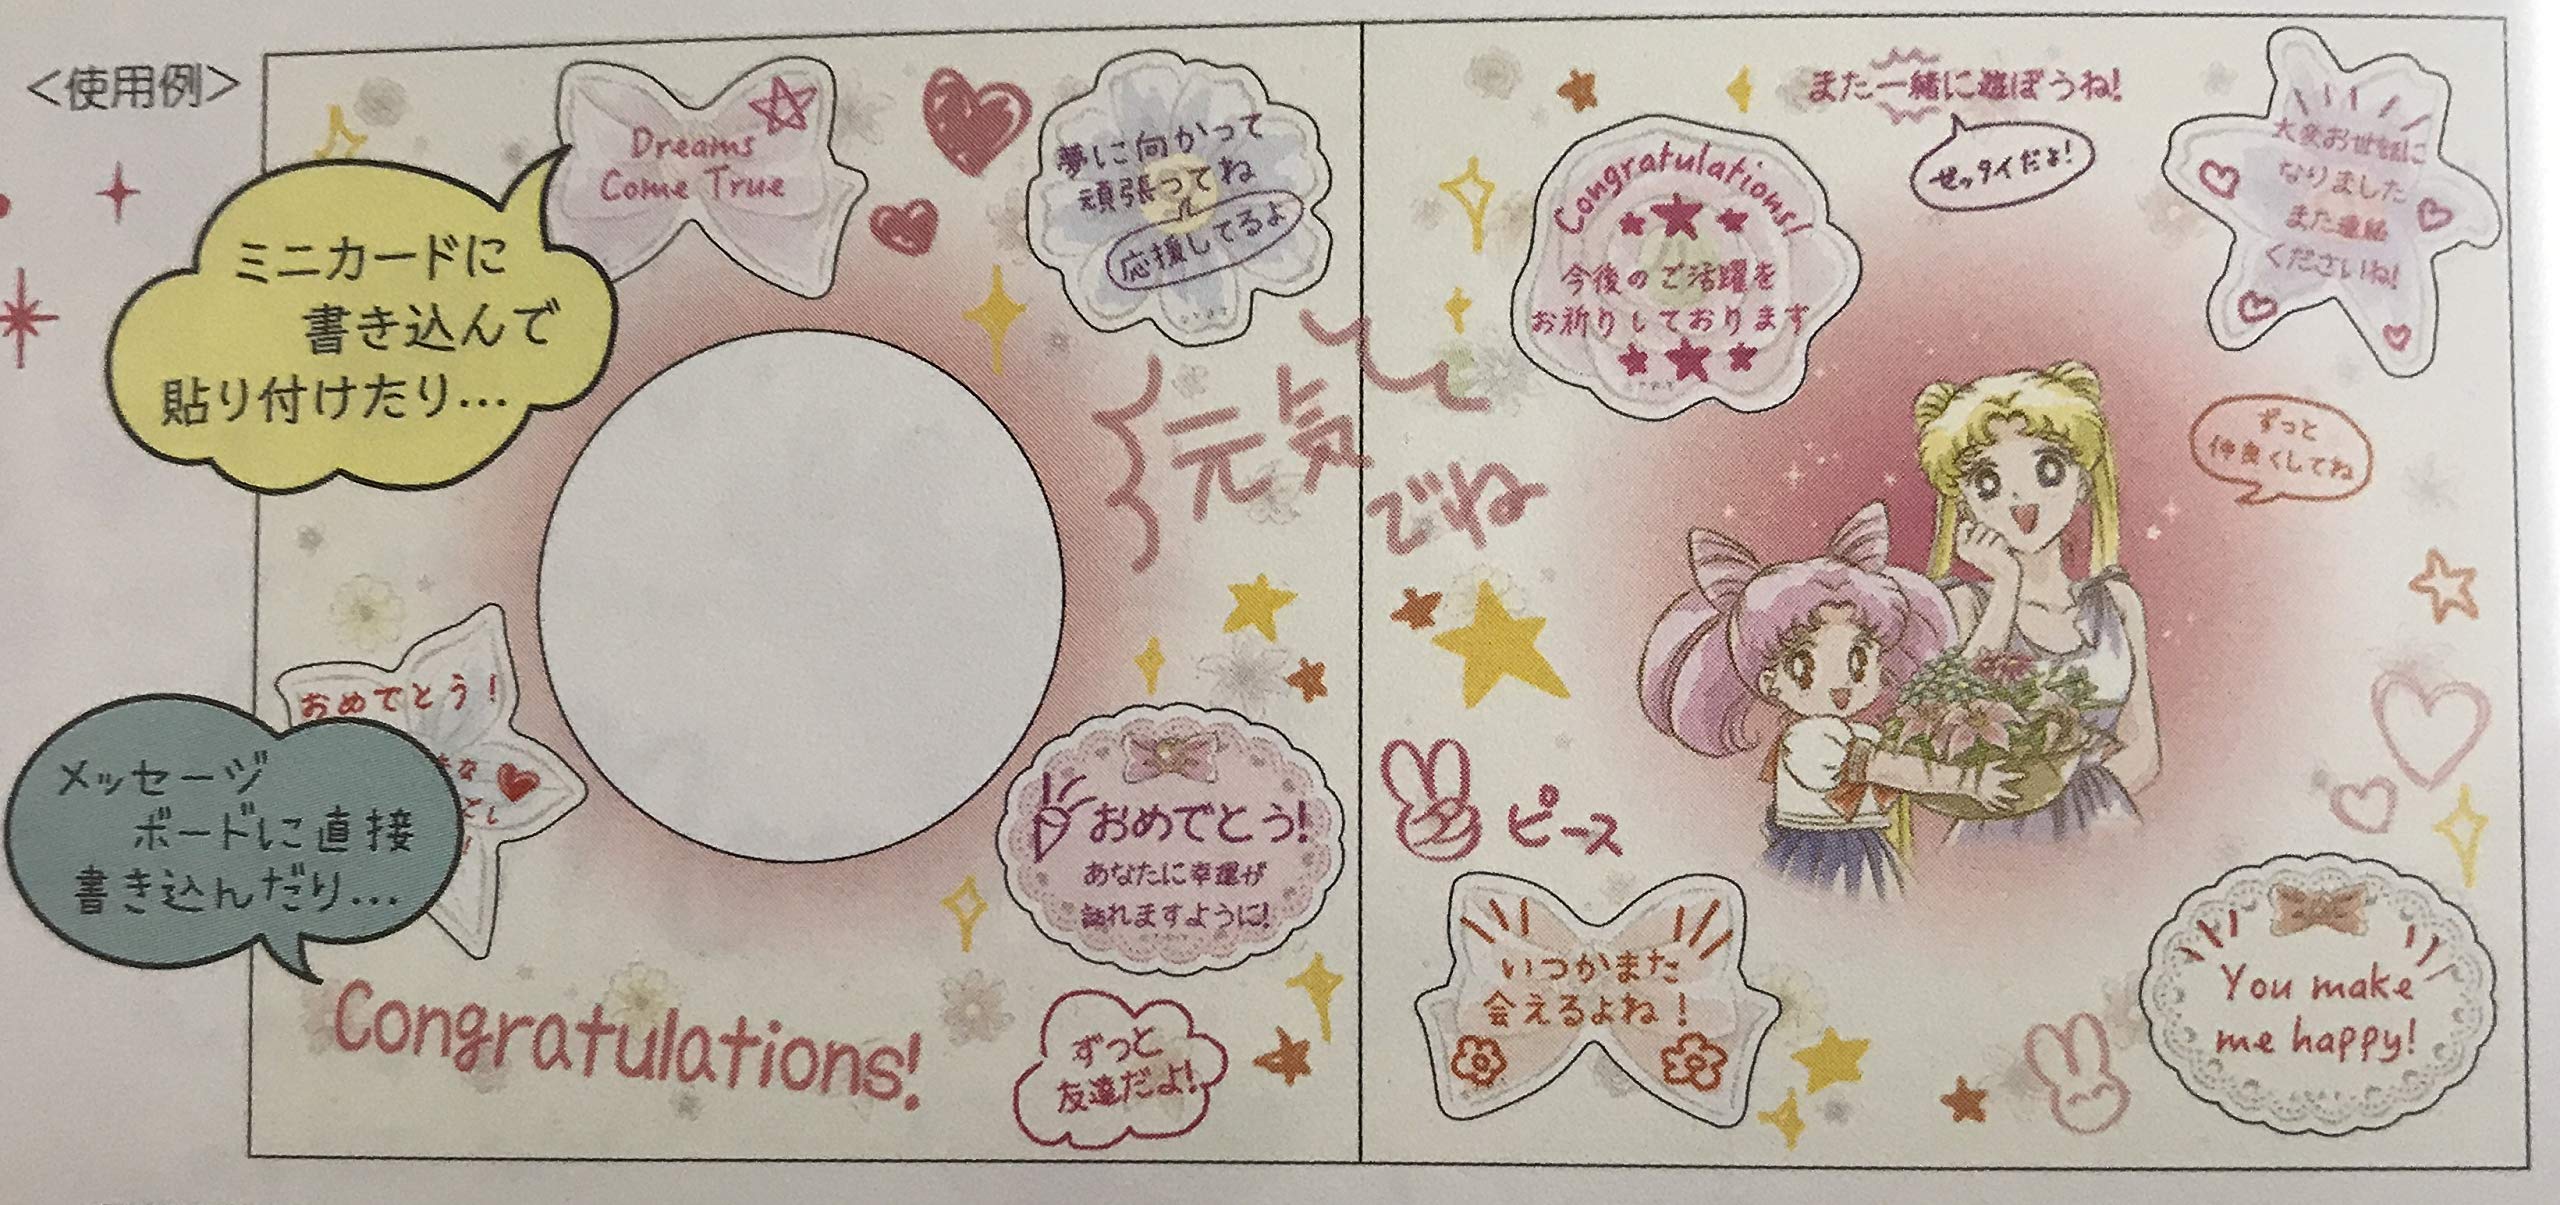 <使用例>
ミニカードに
書き込んで
貼り付けたり…
Dreams
Come True
夢に向かって
頑張ってね
応援してるよ
元気
でね
おめでとう!
メッセージ
ボードに直接
書き込んだり…
おめでとう!
あなたに幸運が
訪れますように!
Congratulations!
ずっと
友達だよ!
また一緒に遊ぼうね!
ぜっタイだよ!
Congratulations!
今後のご活躍を
お祈りしております
大変お世話に
なりました
また連絡
くださいね!
ずっと
仲良くしてね
ピース
いつかまた
会えるよね!
You make
me happy!